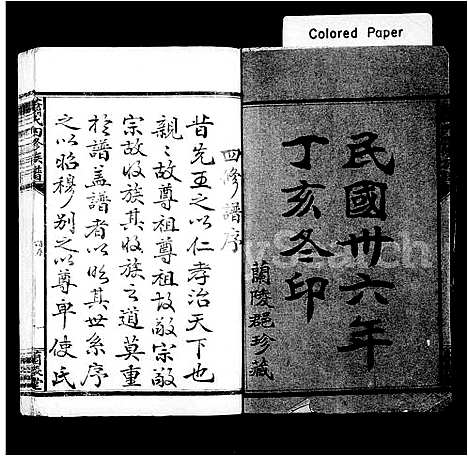 Colored Paper
民國卅六年
丁亥冬印
蘭陵郡珍藏
四修譜序
昔先王之以仁孝治天下也
親〻故尊祖尊祖故敬宗敬
宗故收族其收族之道莫重
於譜蓋譜者以明其世系序
之以昭穆別之以尊卑使氏
蕭氏四修族譜